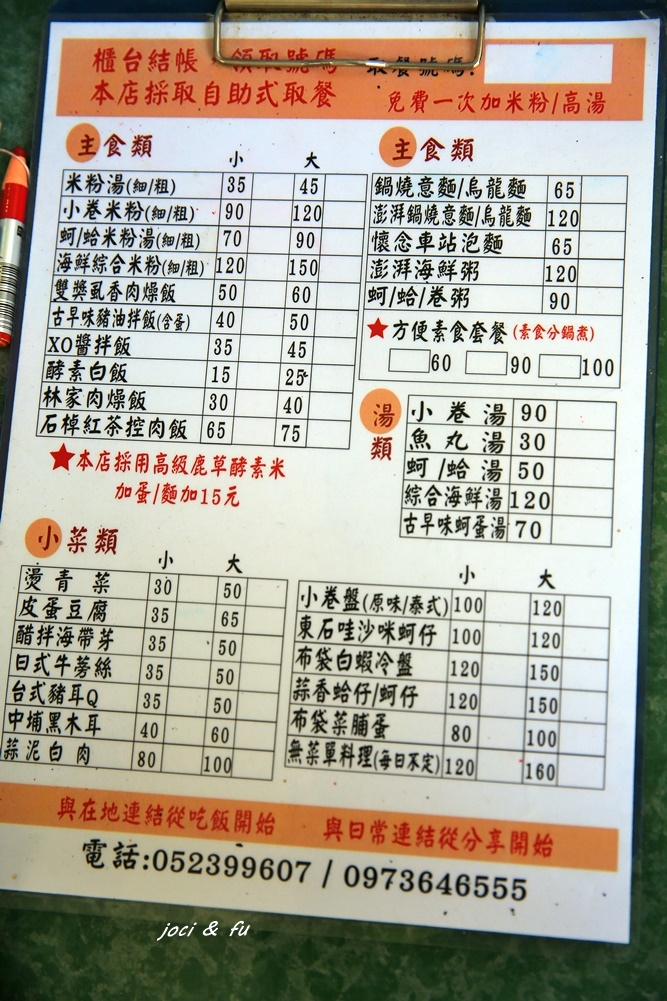 櫃台結帳 領取號碼 取餐號碼:
本店採取自助式取餐 免費一次加米粉/高湯
主食類
小 大
米粉湯(細/粗) 35 45
小卷米粉(細/粗) 90 120
蚵/蛤米粉湯(細/粗) 70 90
海鮮綜合米粉(細/粗) 120 150
雙獎虱香肉燥飯 50 60
古早味豬油拌飯(含蛋) 40 50
XO醬拌飯 35 45
酵素白飯 15 25
林家肉燥飯 30 40
石棹紅茶控肉飯 65 75
★本店採用高級鹿草酵素米
加蛋/麵加15元
主食類
鍋燒意麵/烏龍麵 65
澎湃鍋燒意麵/烏龍麵 120
懷念車站泡麵 65
澎湃海鮮粥 120
蚵/蛤/卷粥 90
★方便素食套餐(素食分鍋煮)
60 90 100
湯類
小卷湯 90
魚丸湯 30
蚵/蛤湯 50
綜合海鮮湯 120
古早味蚵蛋湯 70
小菜類
小 大
燙青菜 30 50
皮蛋豆腐 35 65
醋拌海帶芽 35 50
日式牛蒡絲 35 50
台式豬耳Q 35 50
中埔黑木耳 40 60
蒜泥白肉 80 100
小 大
小卷盤(原味/泰式) 100 120
東石哇沙咪蚵仔 100 120
布袋白蝦冷盤 120 150
蒜香蛤仔/蚵仔 120 150
布袋菜脯蛋 80 100
無菜單料理(每日不定) 120 160
與在地連結從吃飯開始 與日常連結從分享開始
電話:052399607 / 0973646555
joci & fu